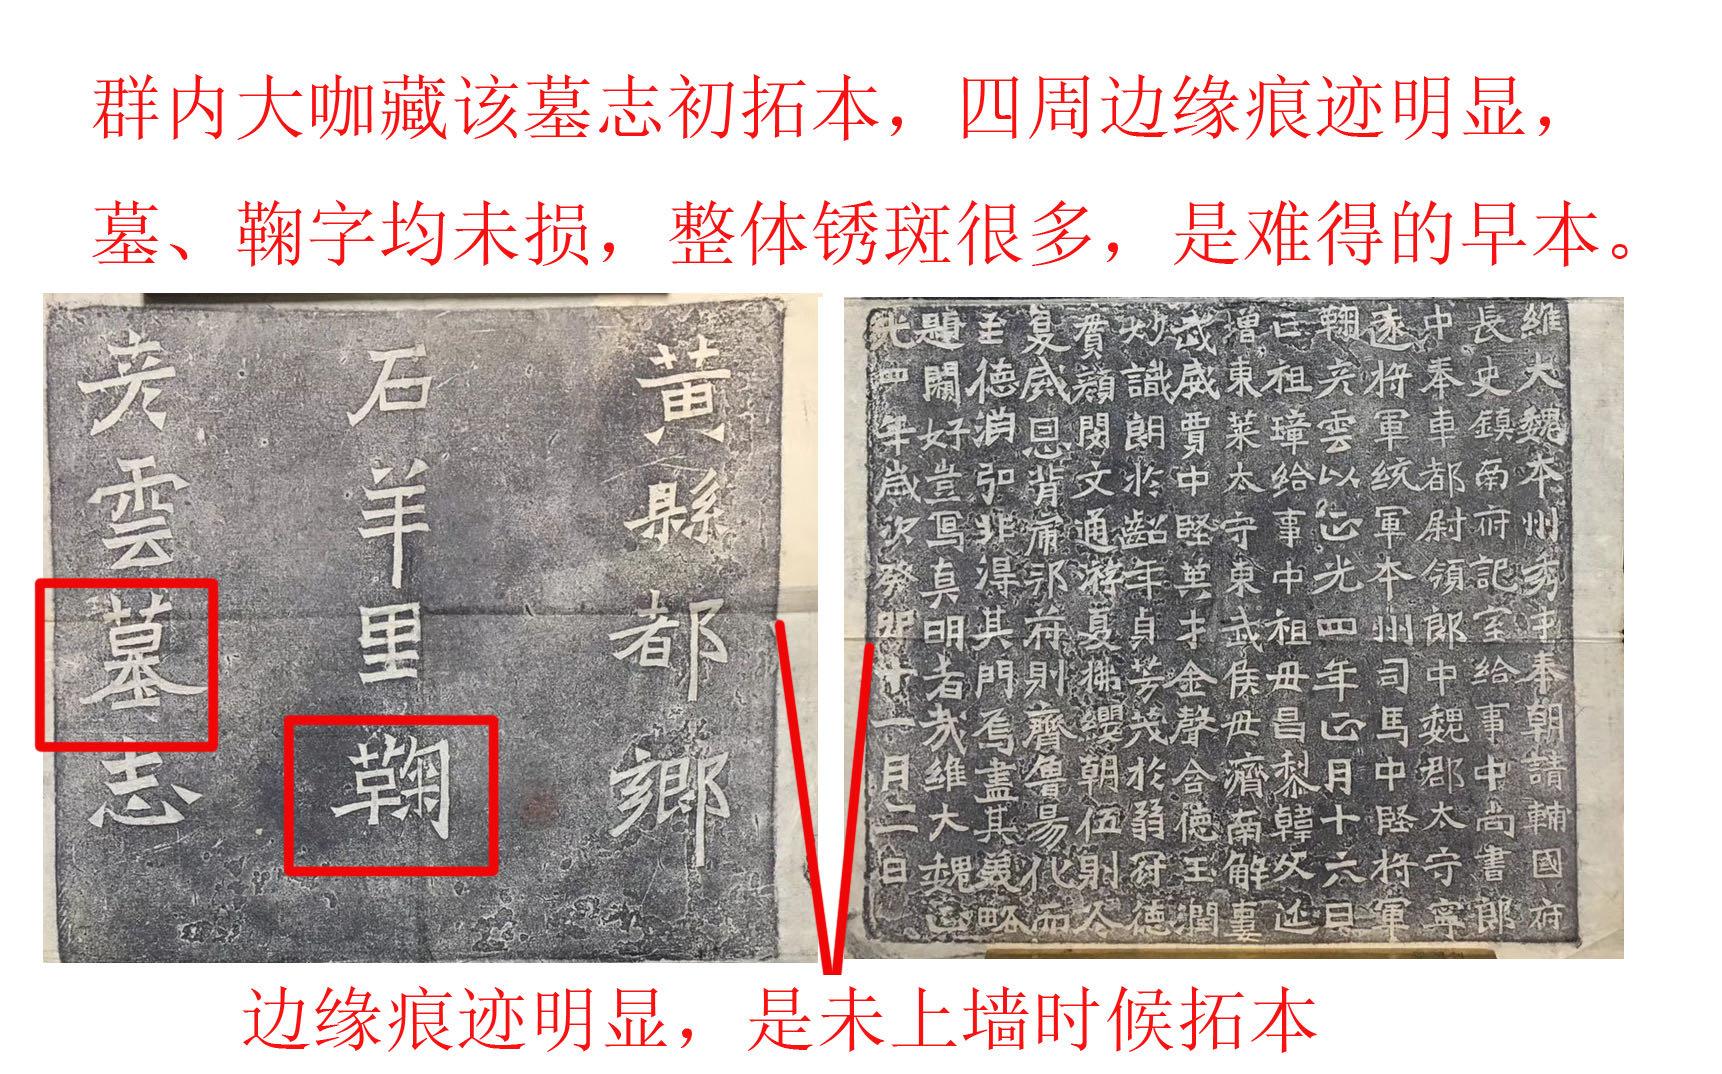 群内大咖藏该墓志初拓本，四周边缘痕迹明显，
墓、鞠字均未损，整体锈斑很多，是难得的早本。
黃縣都鄉
石羊里鞠
彦雲墓志
維大魏本州秀才奉朝請輔國府
長史鎮南府記室給事中尚書郎
中奉車都尉領郎中魏郡太守寧
遠將軍統軍本州司馬中堅將軍
鞠彦雲以正光四年正月十六日
亡祖璋給事中祖母昌黎韓父延
增東萊太守東武侯母濟南解妻
武威賈中堅英才金聲含德玉潤
妙識朗於齠年貞芳茂於弱冠德
實顏閔文通游夏拂纓朝伍則
夏威恩背庸邪府則齊魯易化而
至德淵弘非得其門焉盡其義略
題闕好豈寫真明者哉維大魏正
光四年歲次癸卯十一月二日
边缘痕迹明显，是未上墙时候拓本